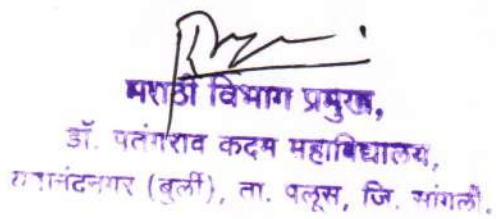 मराठी विभाग प्रमुख,
डॉ. पतंगराव कदम महाविद्यालय,
(बुर्ली), ता. पलूस, जि. सांगली.